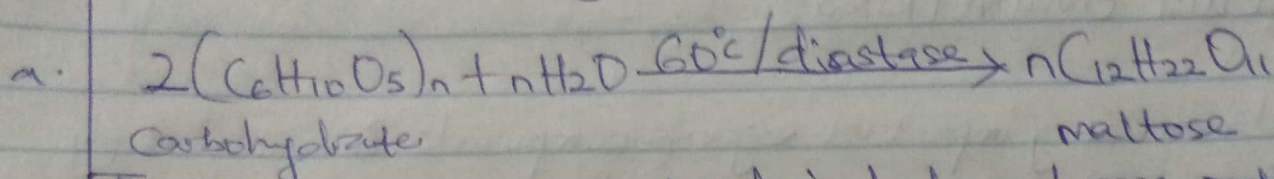 a. 2(C6H10O5)n + nH2O 60°c/diastase → nC12H22O11
Carbohydrate maltose